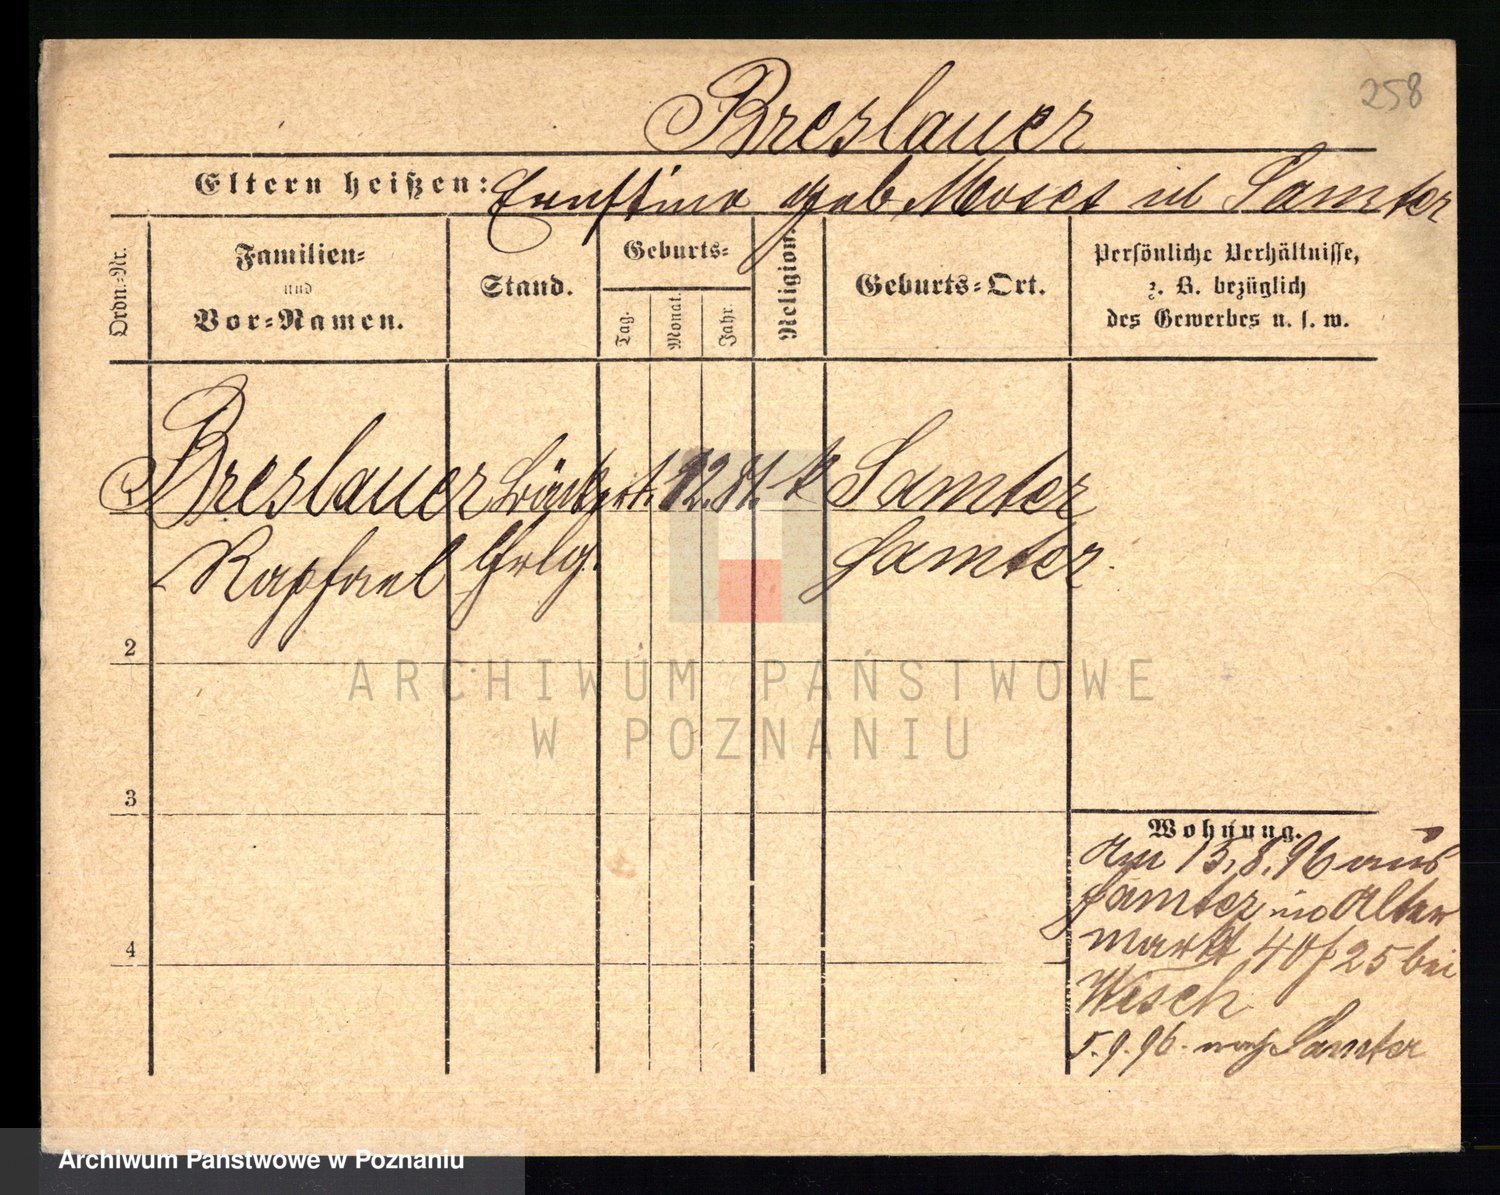 258
Breslauer
Eltern heißen: Ernstine geb. Moses in Samter
Ordn.-Nr.
Familien-
und
Vor-Namen.
Stand.
Geburts-
Tag.
Monat.
Jahr.
Religion.
Geburts-Ort.
Persönliche Verhältnisse,
z. B. bezüglich
des Gewerbes u. s. w.
Breslauer
Raphael
Bäcker
12. 81.
Samter
Samter
2
3
4
Wohnung.
Am 15.8.96 aus
Samter in Alter
markt 40/25 bei
Wisch
5.9.96. nach Samter
ARCHIWUM PAŃSTWOWE
W POZNANIU
Archiwum Państwowe w Poznaniu